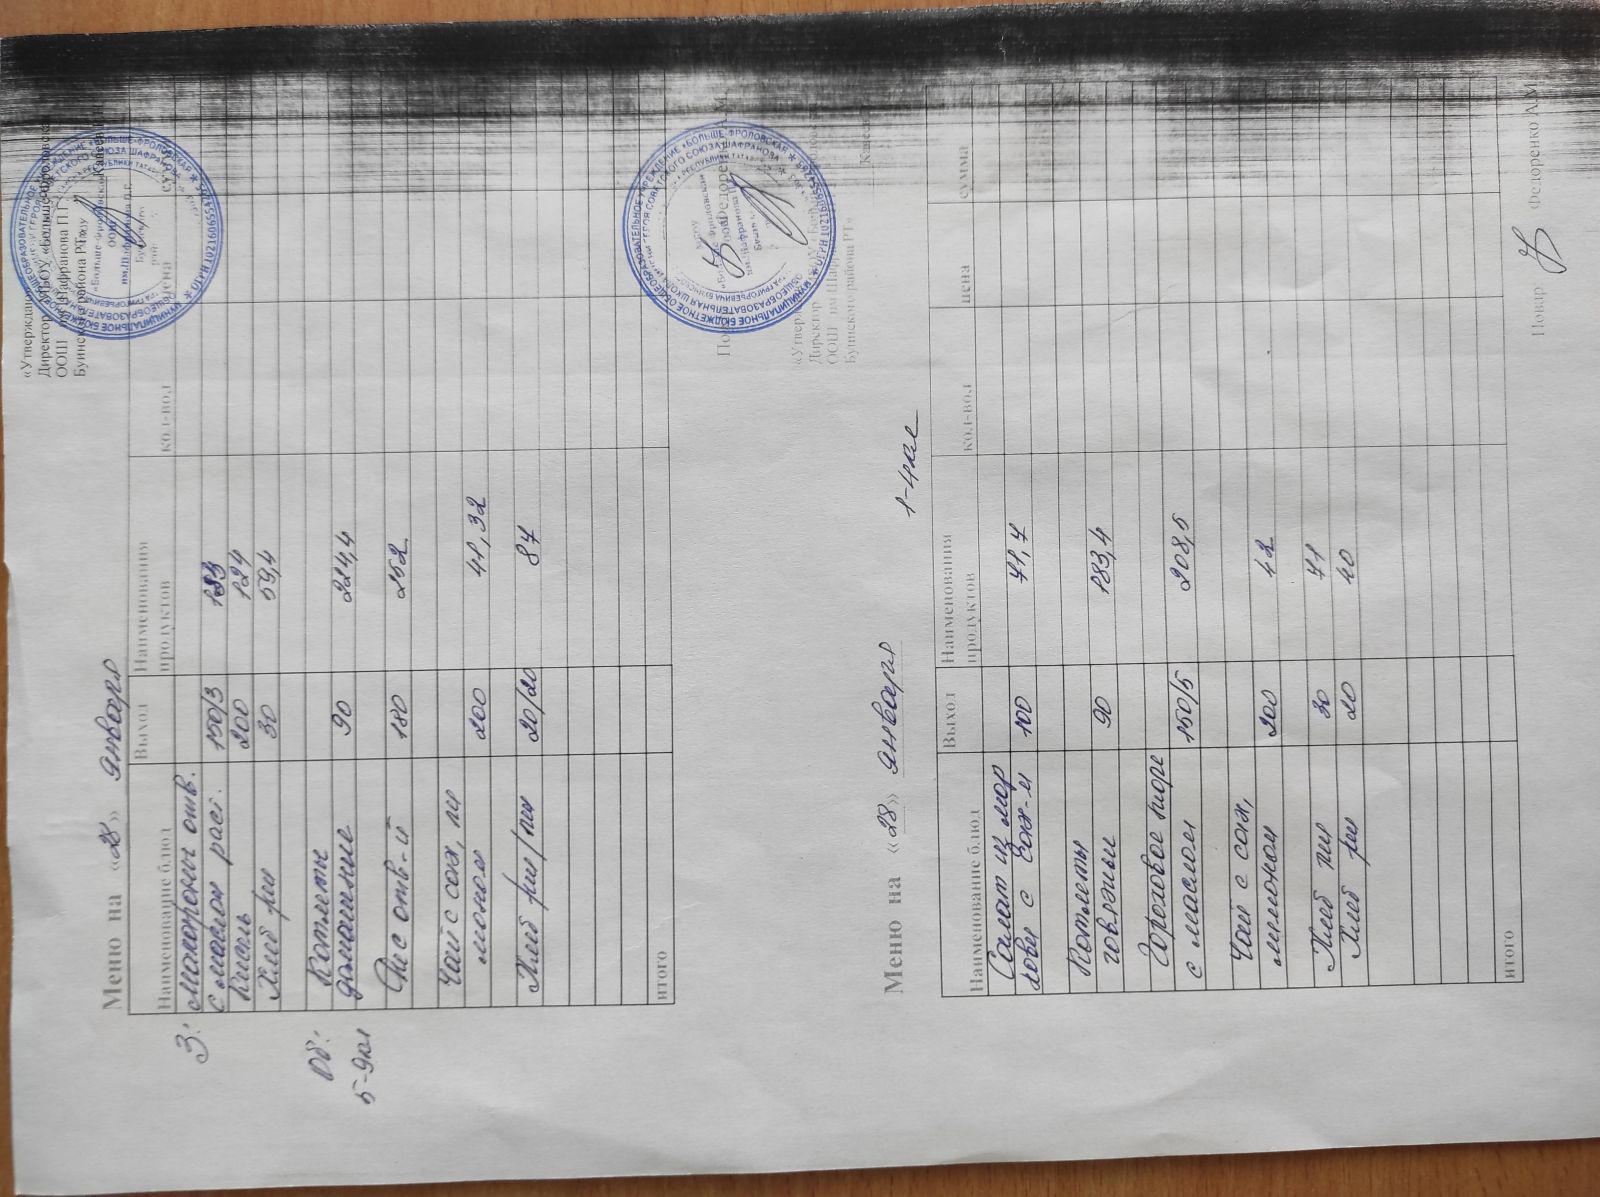 «Утверждаю»
Директор МБОУ «Больше-Фроловская
ООШ им Шафранова П.Г.»
Буинского района РТ»
Меню на «28» января
Наименование блюд Выход Наименования продуктов кол-вол цена сумма
З: Макароны отв.
с маслом раст. 150/3
Кисель 200 124
Хлеб рж 30 59,4
Об: Котлеты
5-9кл домашние 90 224,4
Рис отв-й 180 252
Чай с сах, ли
моном 200 41,32
Хлеб рж/пш 20/20 87
итого
«Утверждаю»
Директор
ООШ им Шафранова
Буинского района РТ»
Меню на «28» января 1-4кл
Наименование блюд Выход Наименования продуктов кол-вол цена сумма
Салат из мор
кови с сах-м 100 71,7
Котлеты
говяжьи 90 183,4
Гороховое пюре
с маслом 150/5 208,5
Чай с сах,
лимоном 200 42
Хлеб пш 30 71
Хлеб рж 20 40
итого
Повар Федоренко А.М